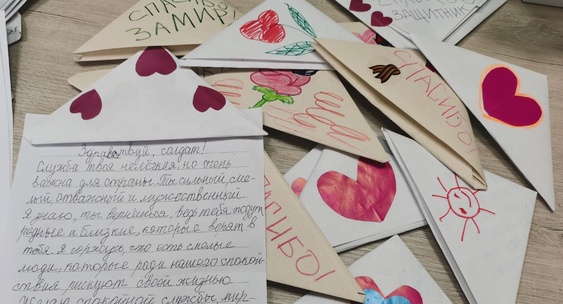 СПАСИБО
ЗА МИР!
ЗАЩИТНИК
СПАСИБО
СПАСИБО!
Здравствуй, солдат!
Служба твоя нелёгкая, но очень
важна для страны. Ты сильный, сме-
лый, отважный и мужественный.
Я знаю, ты вернёшься, ведь тебя ждут
родные и близкие, которые верят в
тебя. Я горжусь, что есть смелые
люди, которые ради нашего спокой-
ствия рискуют своей жизнью.
Желаю спокойной службы, мир-